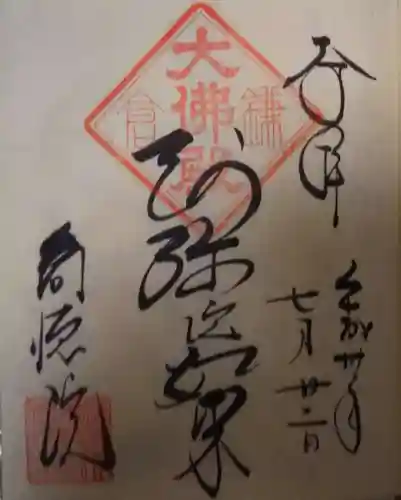 奉拝
平成廿年
七月廿二日
大佛殿
鎌倉
阿弥陀如来
高徳院